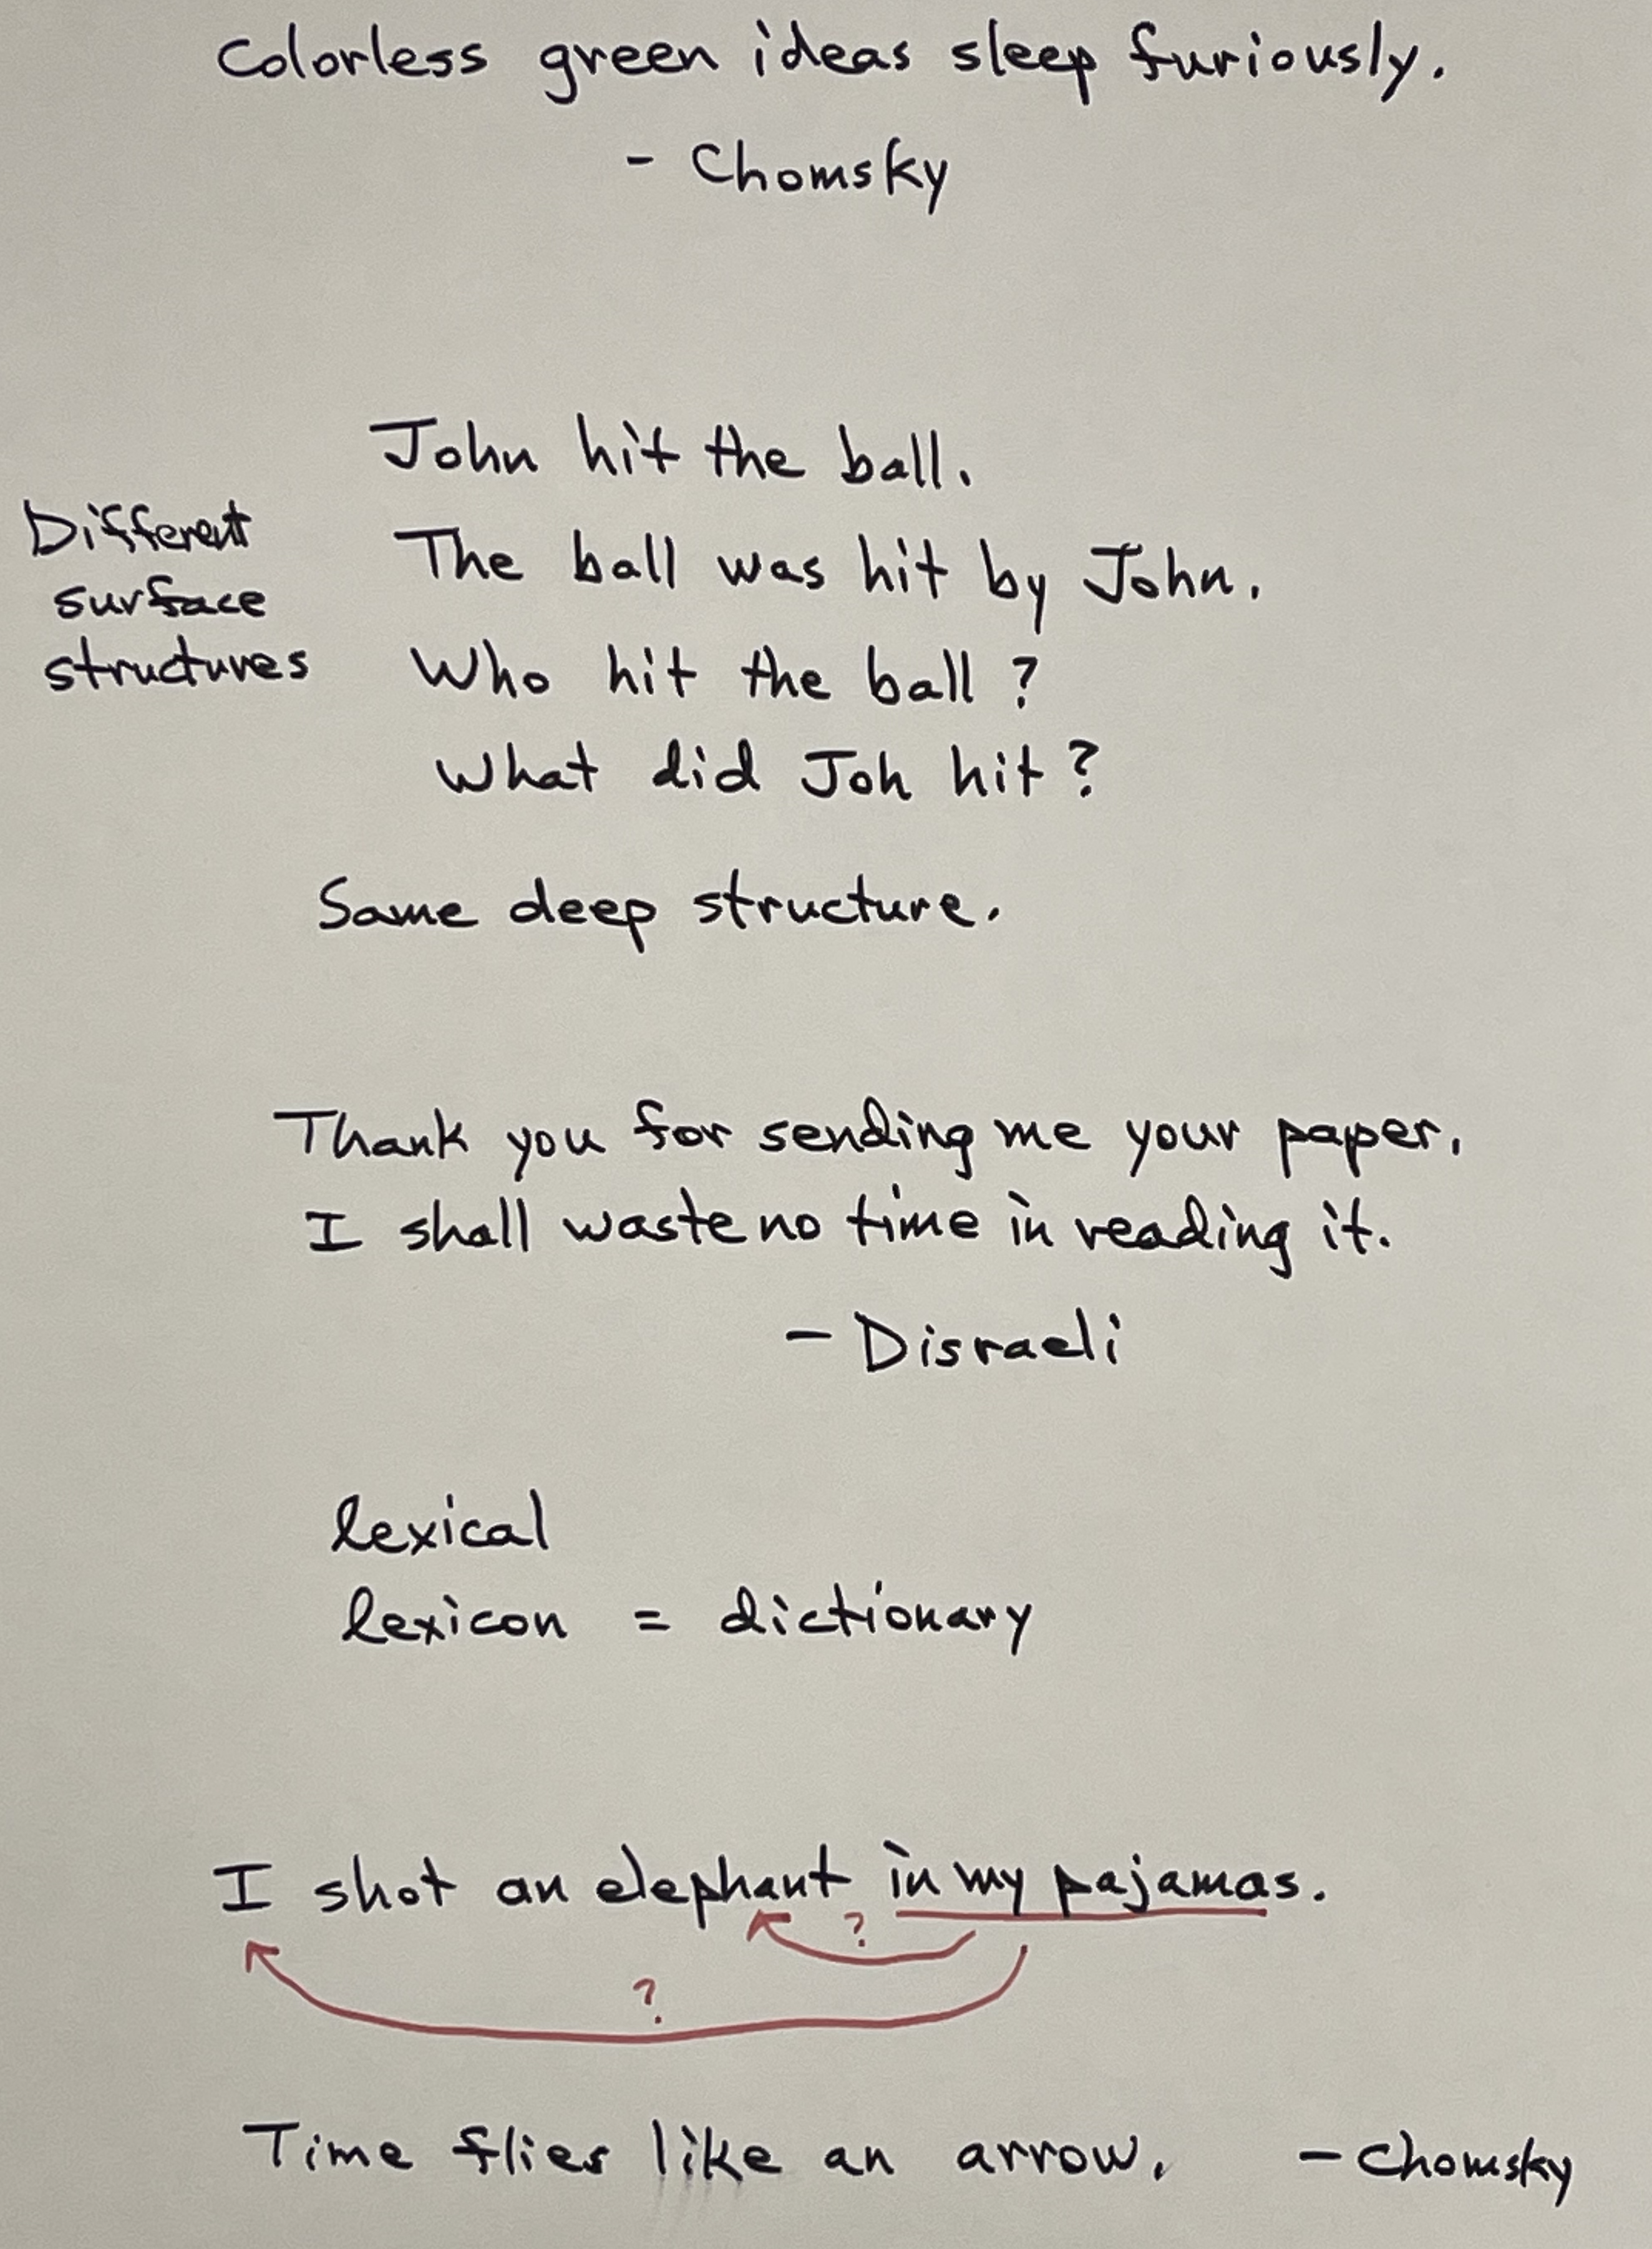 Colorless green ideas sleep furiously.
- Chomsky
John hit the ball.
Different
surface
structures
The ball was hit by John.
Who hit the ball?
What did Joh hit?
Same deep structure.
Thank you for sending me your paper.
I shall waste no time in reading it.
- Disraeli
lexical
lexicon = dictionary
I shot an elephant in my pajamas.
?
?
Time flies like an arrow. - Chomsky